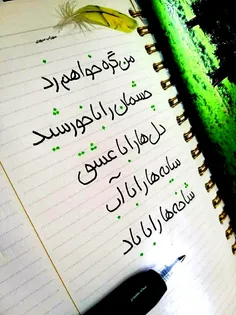 من گره خواهم زد
چشمان را با خورشید
دل‌ها را با عشق
سایه‌ها را با آب
شاخه‌ها را با باد